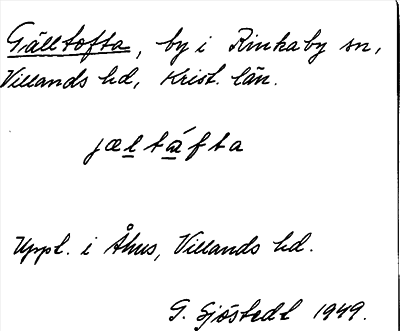 Gälltofta, by i Rinkaby sn,
Villands hd, Krist. län.
jæltáfta
Uppl. i Åhus, Villands hd.
G. Sjöstedt 1949.